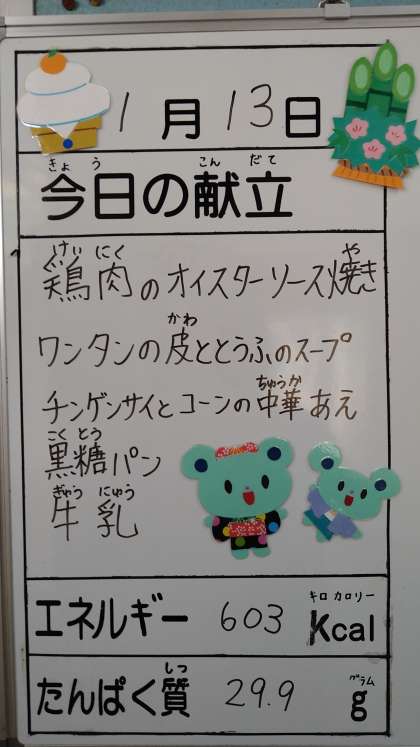 1月13日
きょう こんだて
今日の献立
けいにく や
鶏肉のオイスターソース焼き
かわ
ワンタンの皮ととうふのスープ
ちゅうか
チンゲンサイとコーンの中華あえ
こくとう
黒糖パン
ぎゅうにゅう
牛乳
キロカロリー
エネルギー 603 Kcal
しつ グラム
たんぱく質 29.9 g